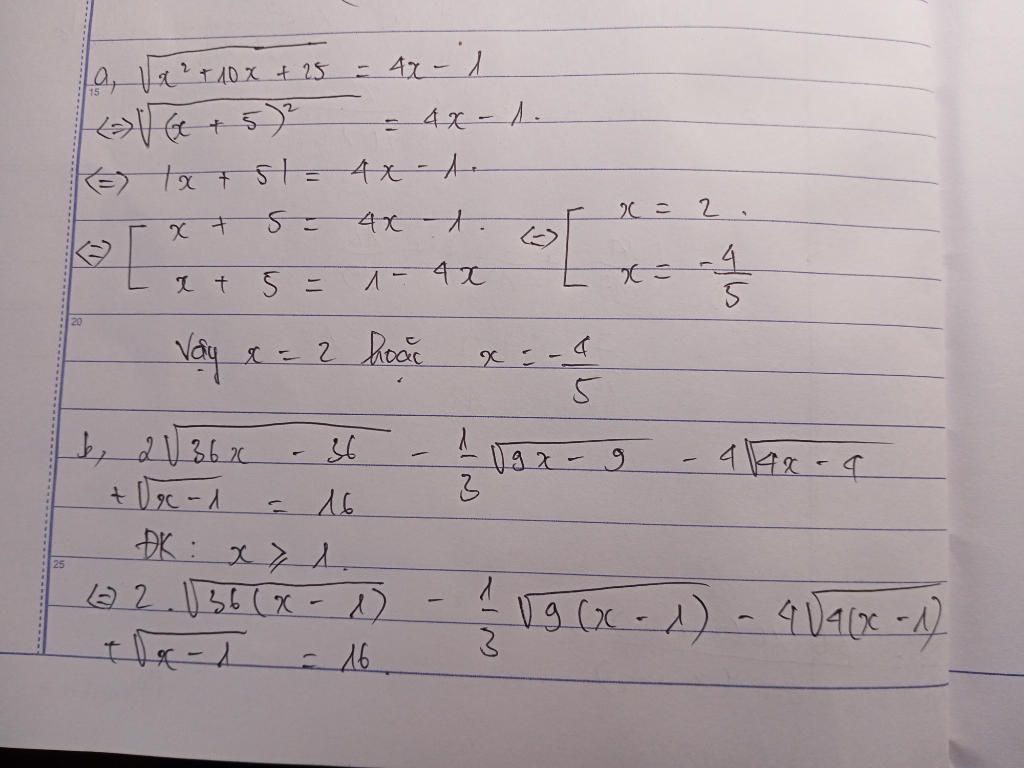 15
a, √(x² + 10x + 25) = 4x - 1
<=> √((x + 5)²) = 4x - 1.
<=> |x + 5| = 4x - 1.
<=> [ x + 5 = 4x - 1. <=> [ x = 2.
x + 5 = 1 - 4x x = -4/5
20
Vậy x = 2 hoặc x = -4/5
b, 2√(36x - 36) - 1/3 √(9x - 9) - 4√(4x - 4)
+ √(x - 1) = 16
ĐK: x ⩾ 1.
25
<=> 2.√(36(x - 1)) - 1/3 √(9(x - 1)) - 4√(4(x - 1))
+ √(x - 1) = 16